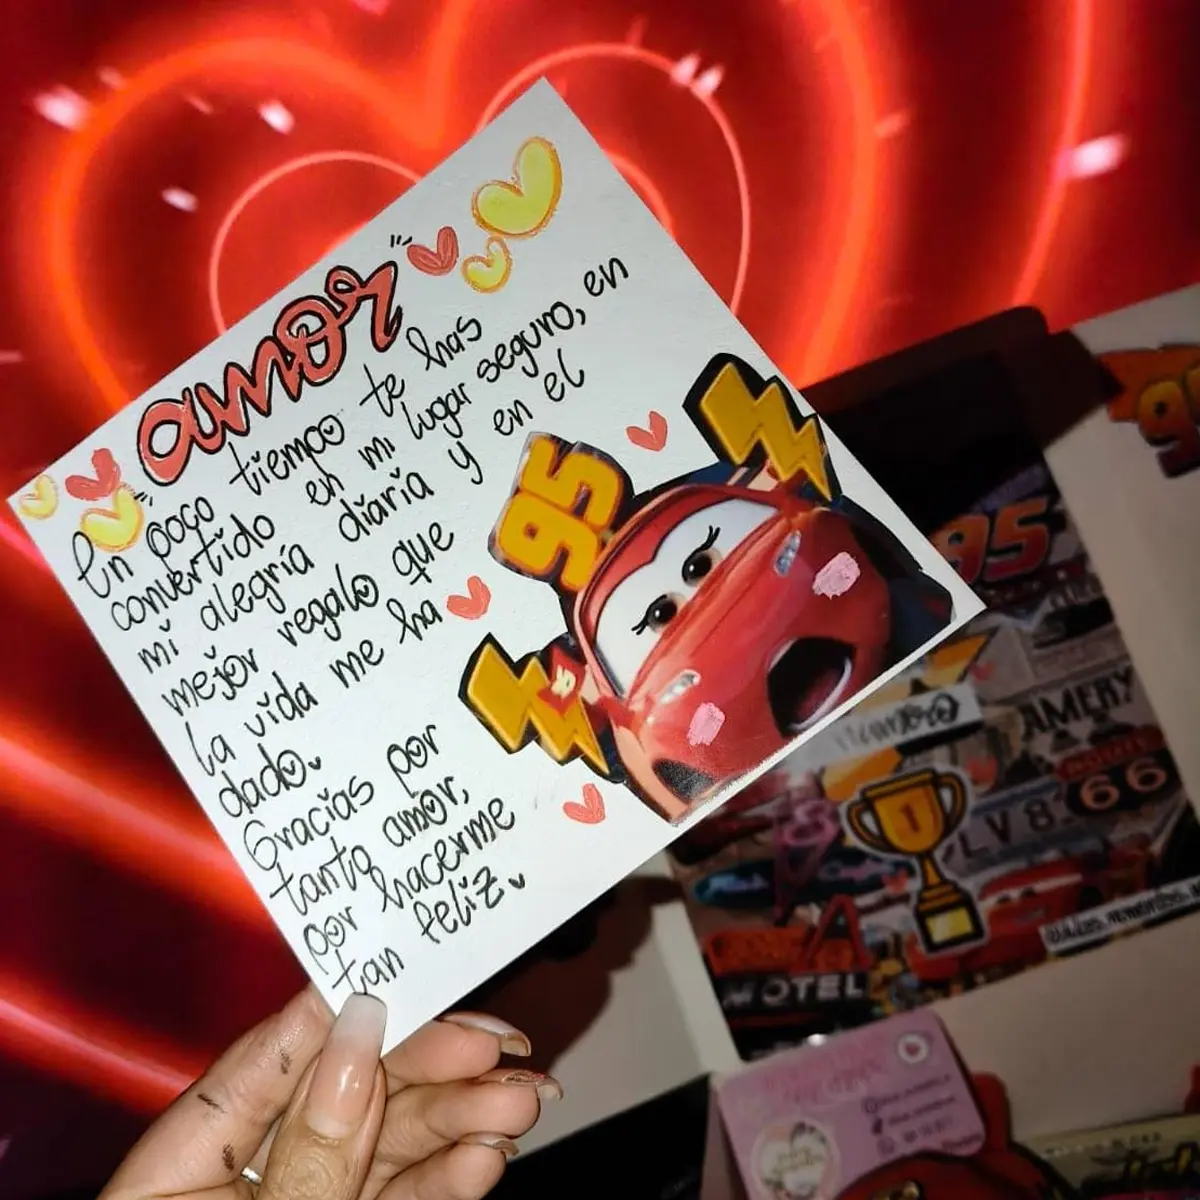 amor
En poco tiempo te has
convertido en mi lugar seguro, en
mi alegría diaria y en el
mejor regalo que
la vida me ha
dado.
Gracias por
tanto amor,
por hacerme
tan feliz.
95
95
95
AMERY
ROUTE
66
LV 83
MOTEL
1